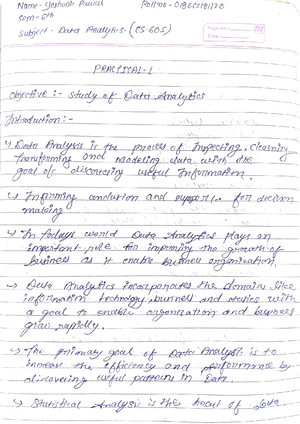 Name- Yashash Pawar Roll no- 0186CS181170
Sem- 6th
Subject - Data Analytics - (CS-605)
Page No.
Date
PRACTICAL-1
Objective :- Study of Data Analytics
Introduction :-
Data Analysis is the process of inspecting, cleaning
transforming and modeling data with the
goal of discovering useful Information.
Informing conclusion and support for decision
making
In todays world Data Analytics plays an
important role for improving the growth of
business as it enable business organization.
Data Analytics incorporates the domain like
information technology, business and statics with
a goal to enable organization and business
grow rapidly.
The primary goal of Data Analyst is to
increase the efficiency and performance by
discovering useful pattern in Data.
Statistical Analysis is the heart of